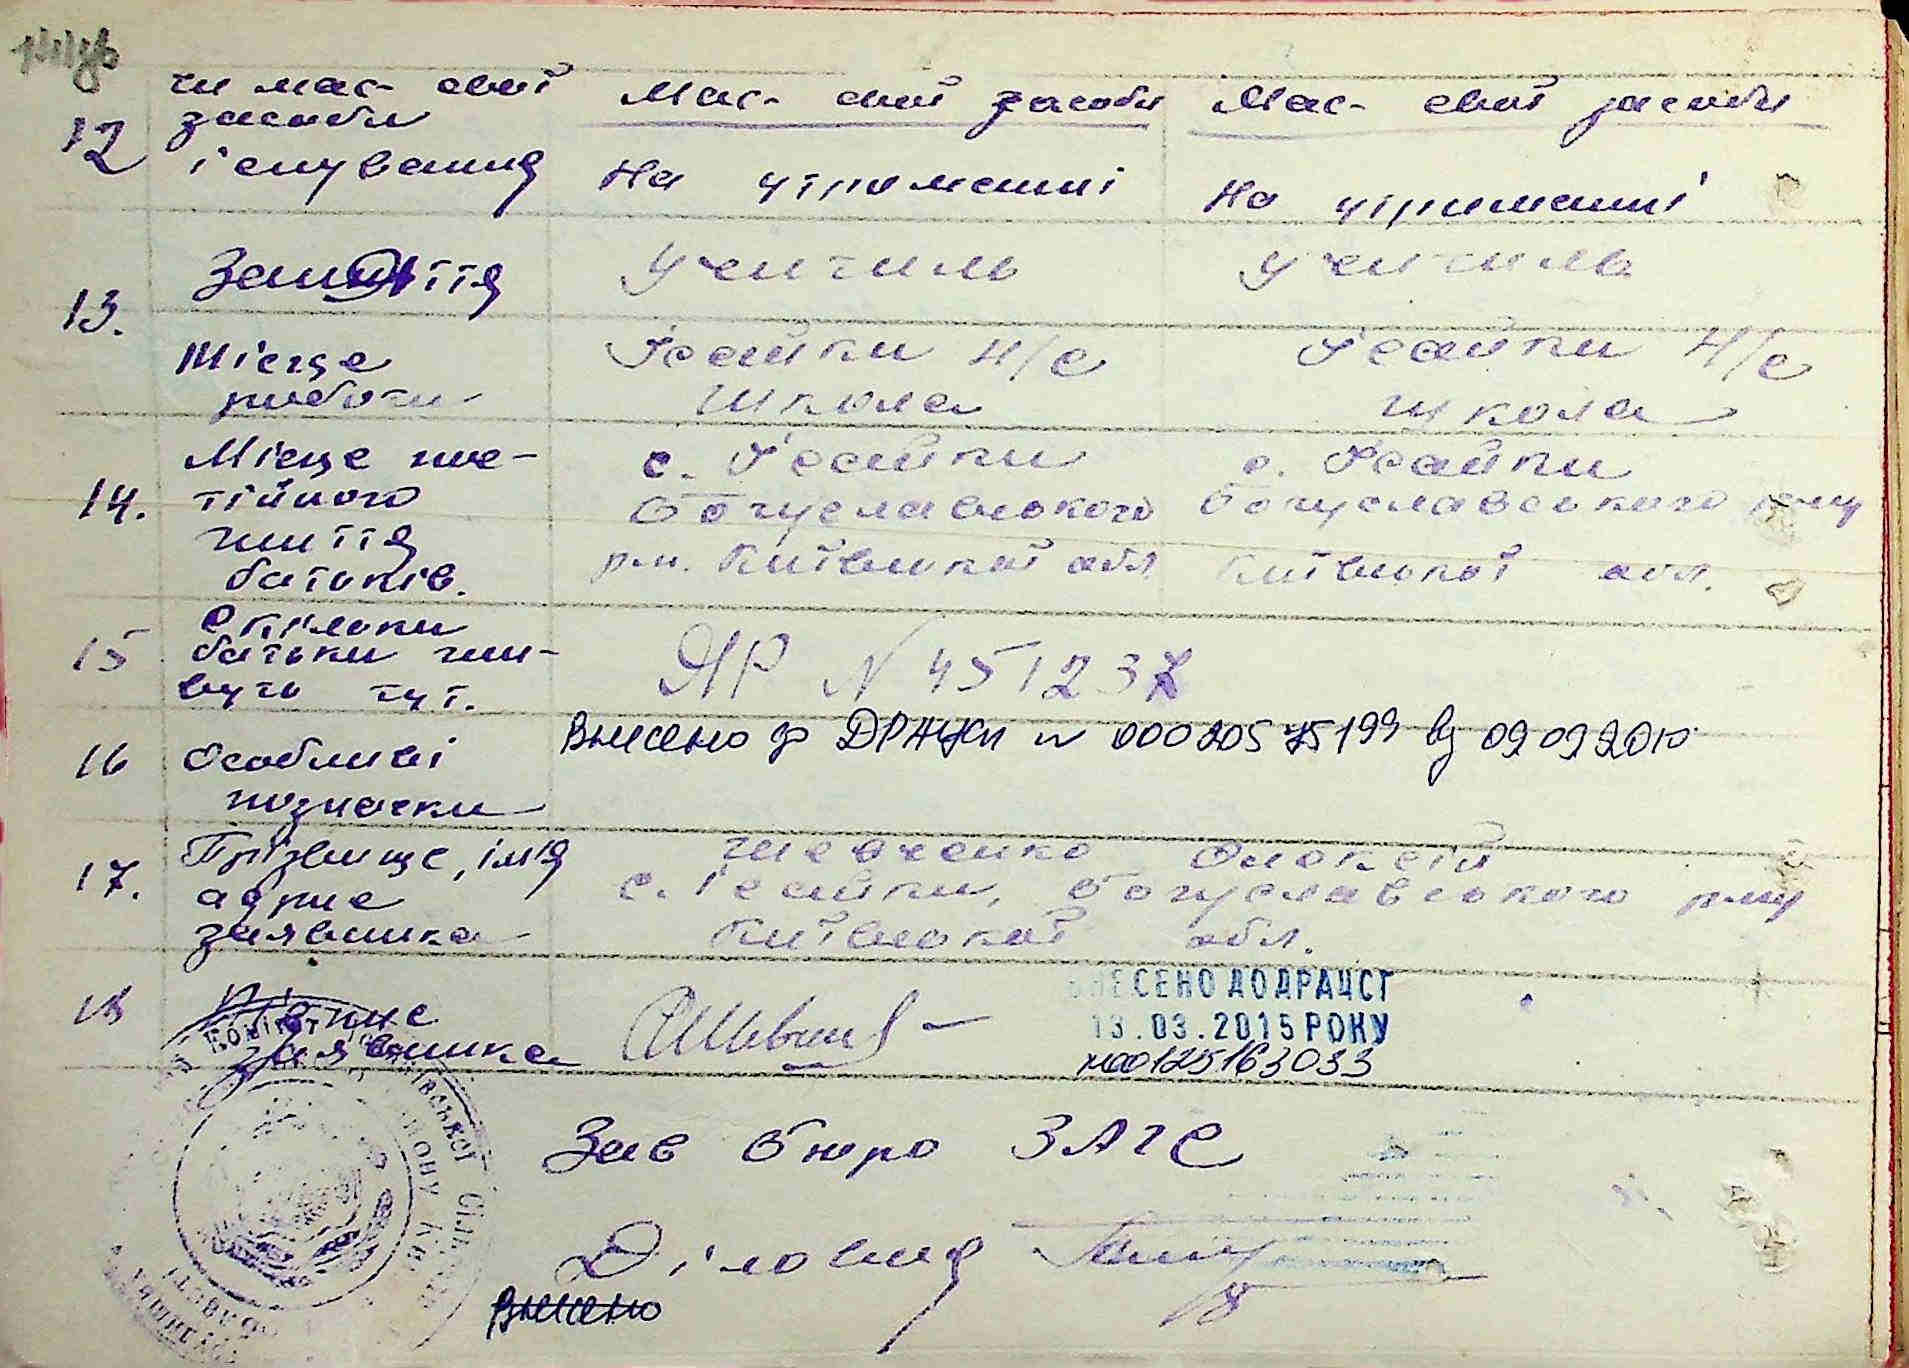 12 чи має свої засоби існування
Має свої засоби
На утриманні
Має свої засоби
На утриманні
13. Заняття
Учитель
Учитель
Місце роботи
Ісайки Н/С
школа
Ісайки Н/С
школа
14. Місце пос-
тійного
життя
батьків.
с. Ісайки
Богуславського
р-н. Київської обл
с. Ісайки
Богуславського р-ну
Київської обл.
15 Скільки
батьки жи-
вуть тут.
ЯР N 451237
16 Особливі
позначки
Внесено до ДРАЦСГ № 00020575199 від 09 09 2010
17. Прізвище, ім'я
адрес
заявника
Шевченко Олексій
с. Ісайки, Богуславського р-ну
Київської обл.
18 Підпис
заявника
ВНЕСЕНО ДО ДРАЦСГ
13.03.2015 РОКУ
№00125163033
Зав бюро ЗАГС
Діловид
Внесено